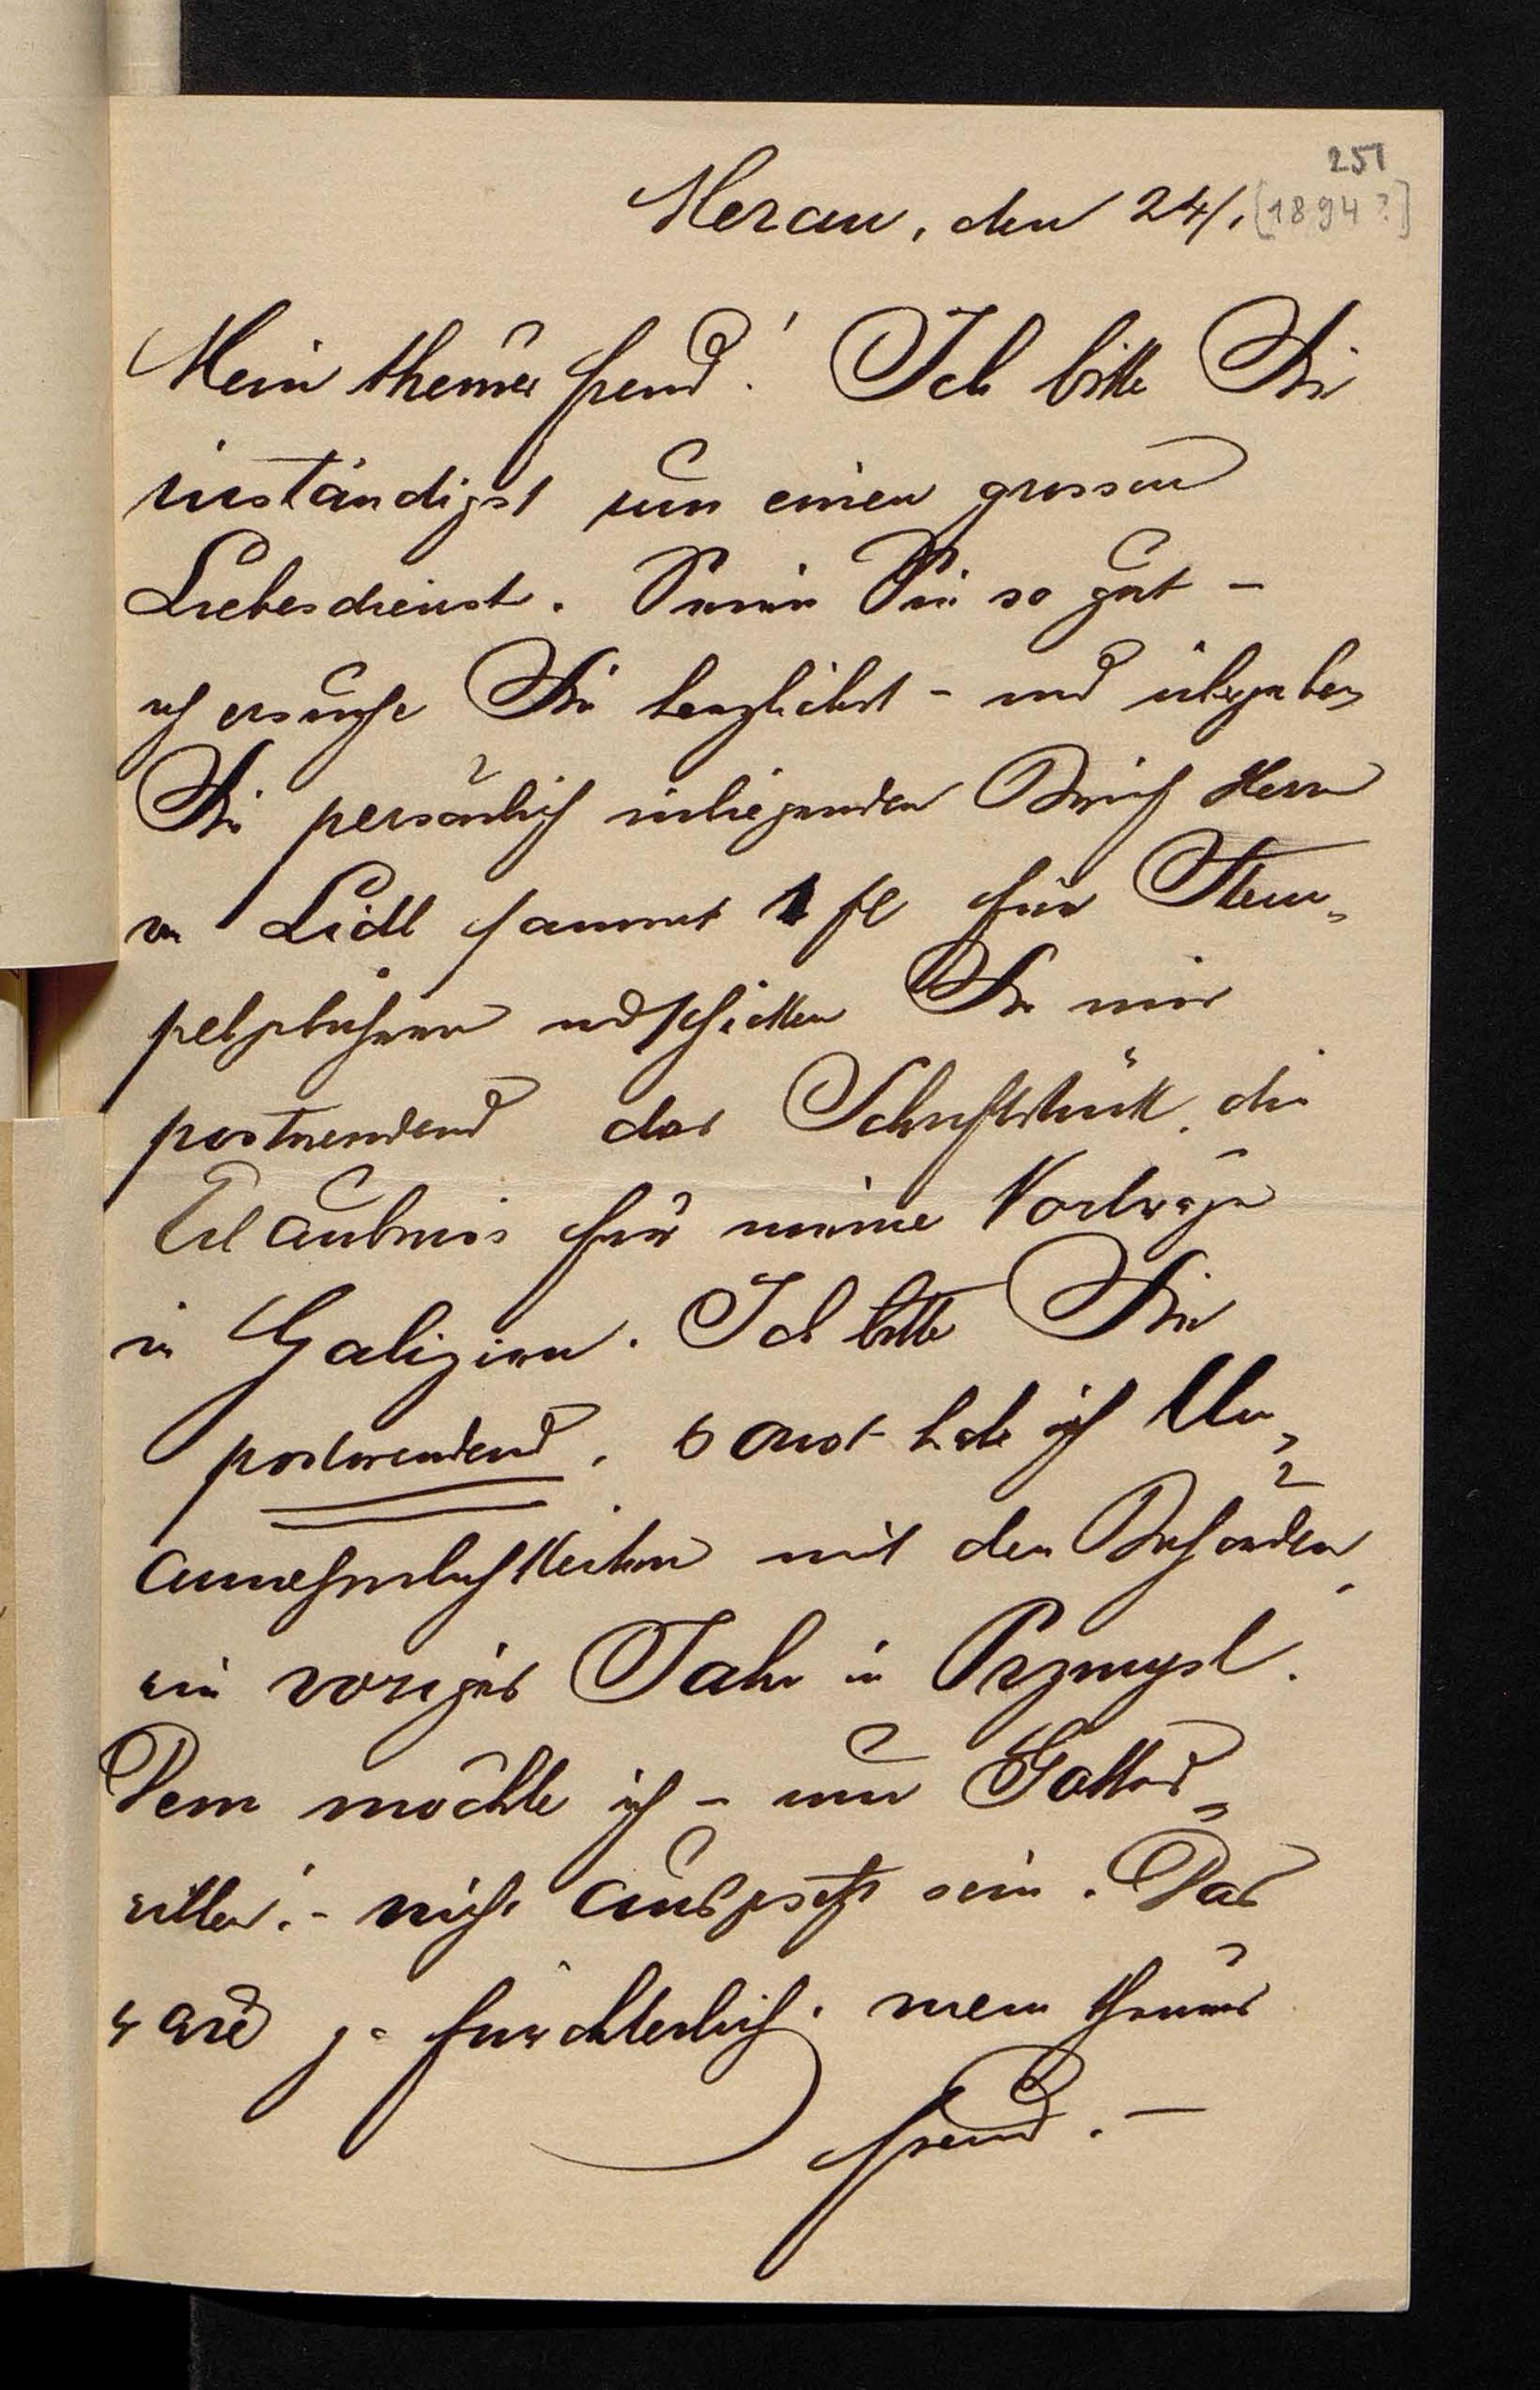 251
Meran, den 24/. [1894?]
Mein theurer Freund! Ich bitte Sie
inständigst um einen grossen
Liebesdienst. Seien Sie so gut –
ich ersuche Sie herzlichst – und übergeben
Sie persönlich inliegenden Brief Herrn
von Lidl sammt 1 fl für Stem-
pelgebühren und schicken Sie mir
postwendend das Schriftstück, die
Erlaubnis für meine Vorträge
in Galizien. Ich bitte Sie
postwendend, sonst habe ich Un-
annehmlichkeiten mit den Behörden,
wie voriges Jahr in Przmysl.
Dem möchte ich – um Gottes
willen! – nicht ausgesetzt sein. Das
wäre ja fürchterlich, mein theurer
Freund. –